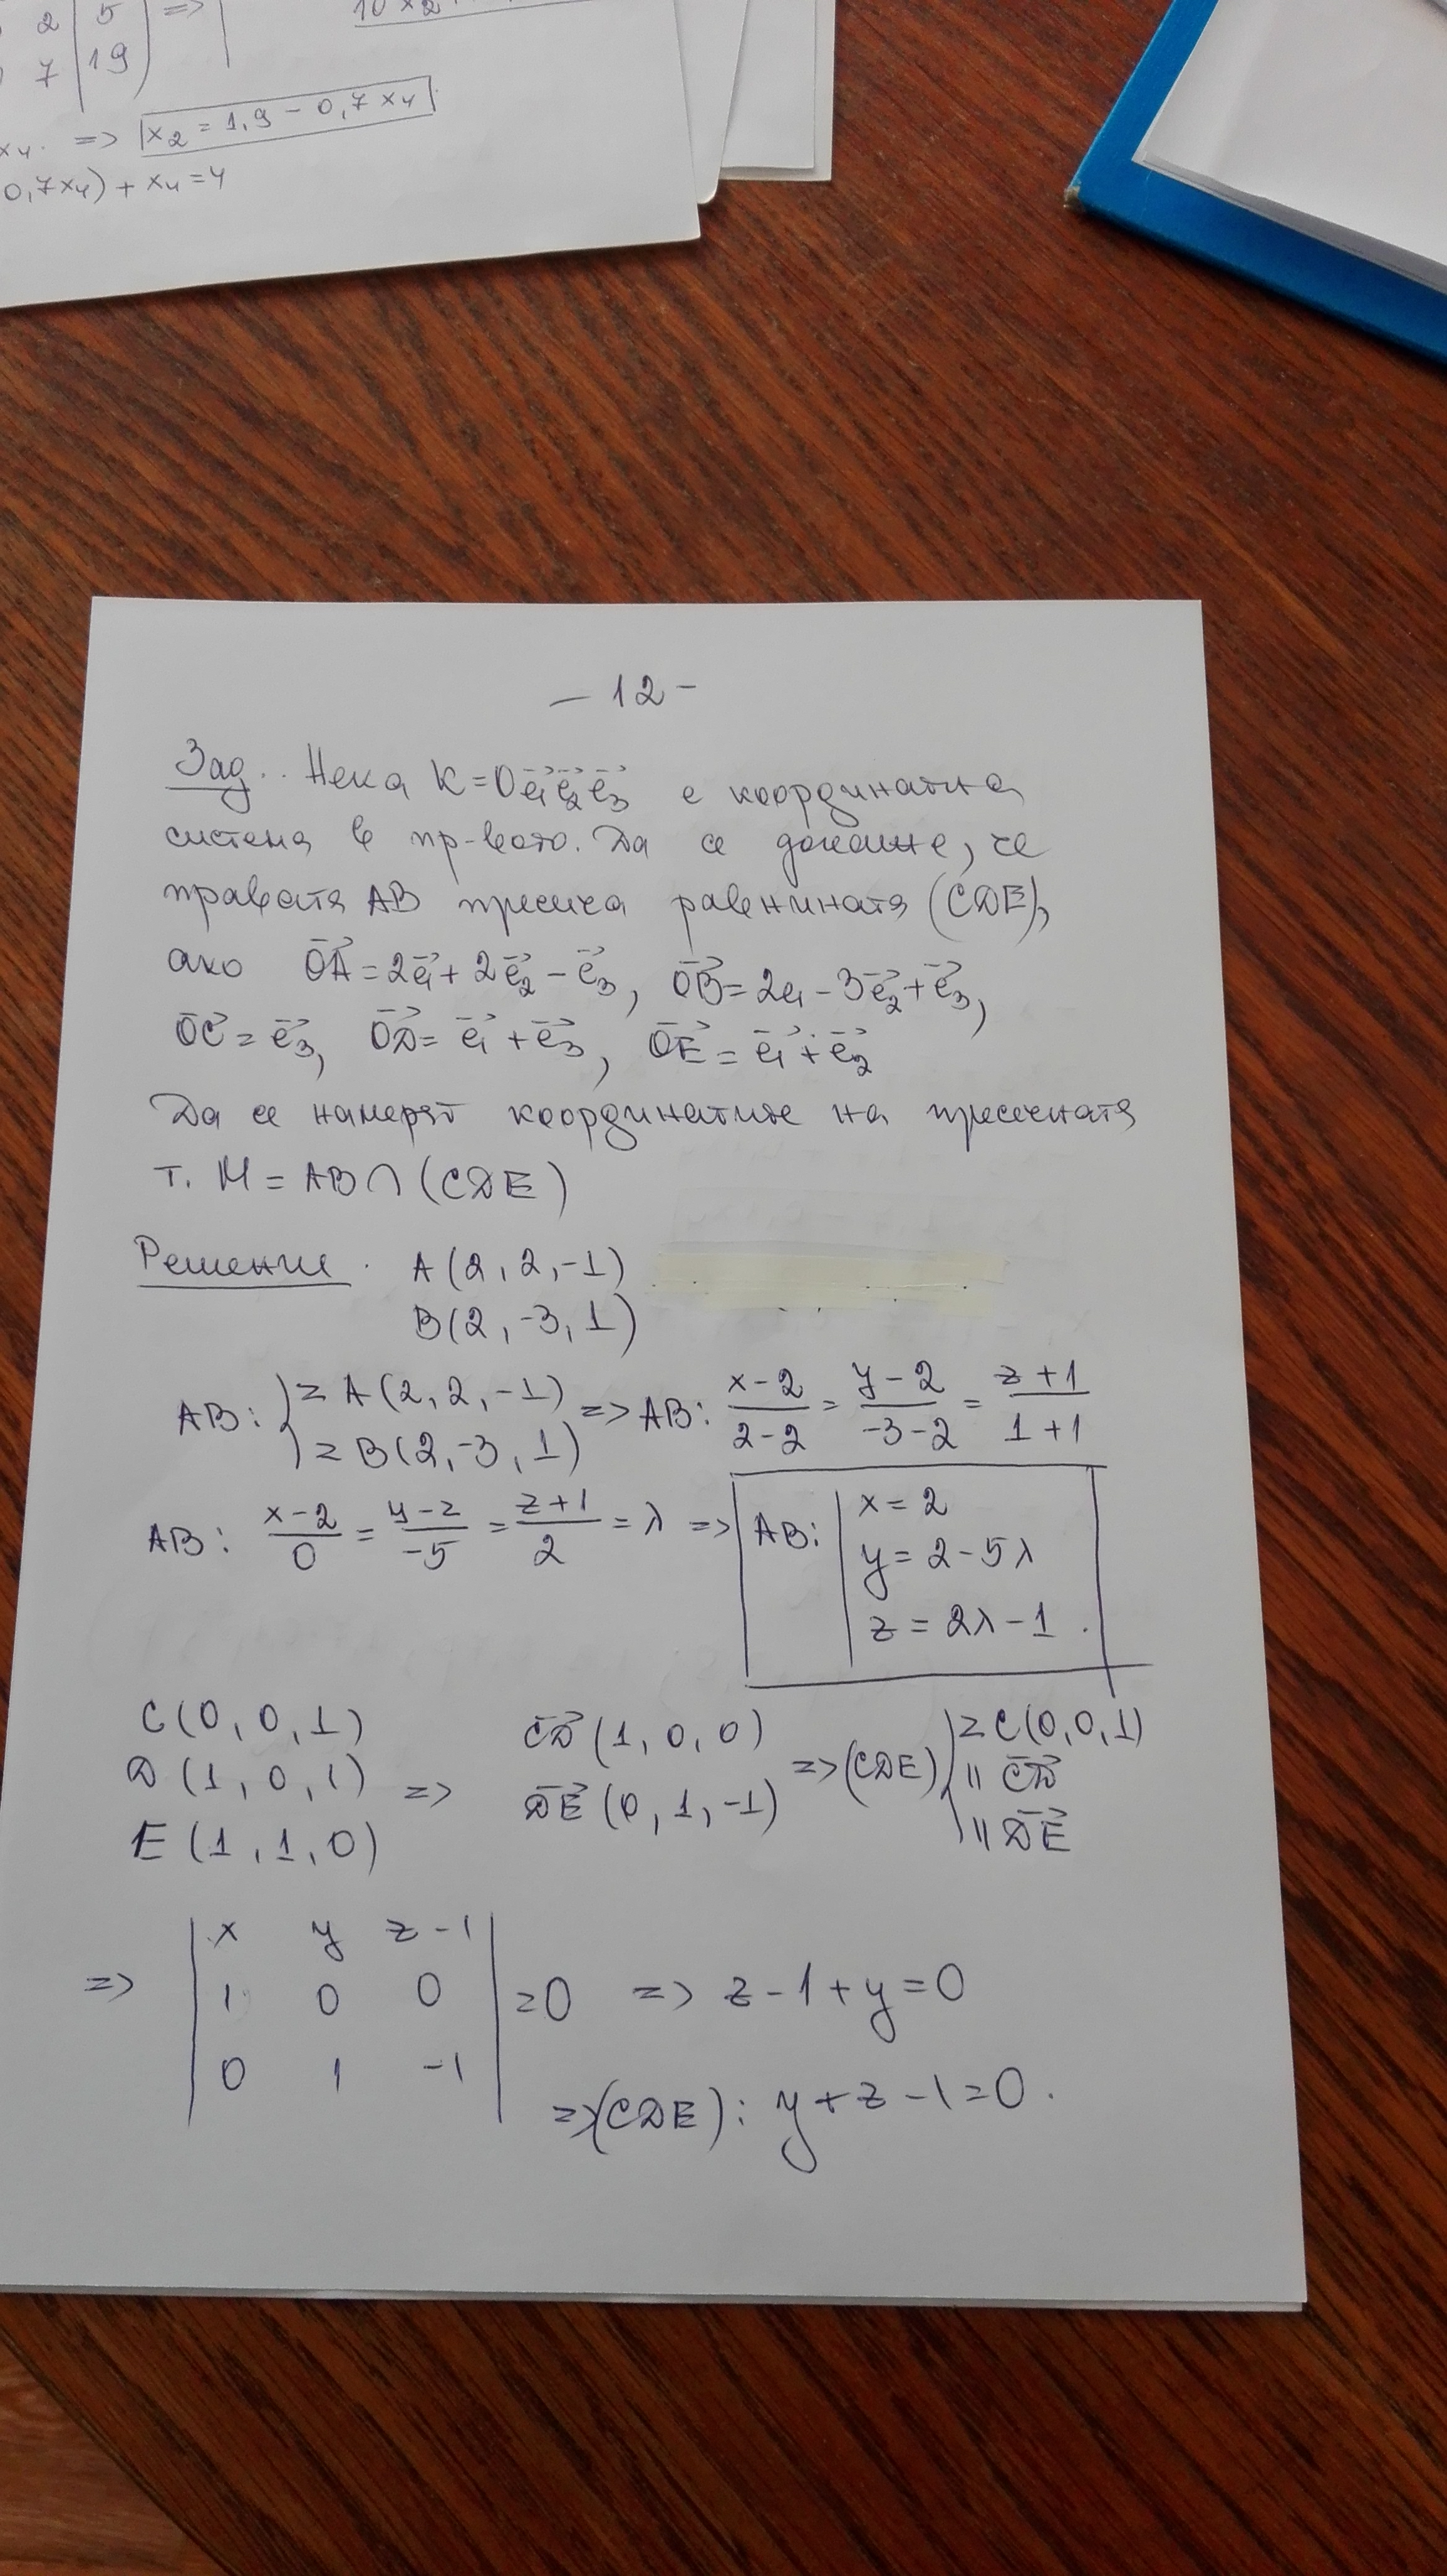 2 | 5 ) => |
7 | 19 )
x₄. => x₂ = 1,9 - 0,7x₄
0,7x₄) + x₄ = 4
- 12 -
Зад. Нека K=Oe₁⃗e₂⃗e₃⃗ е координатна
система в пр-вото. Да се докаже, че
правата AB пресича равнината (CDE),
ако OA⃗=2e₁⃗+2e₂⃗-e₃⃗, OB⃗=2e₁-3e₂⃗+e₃⃗,
OC⃗=e₃⃗, OD⃗=e₁⃗+e₃⃗, OE⃗=e₁⃗+e₂⃗
Да се намерят координатите на пресечната
т. M = AB∩(CDE)
Решение. A(2,2,-1)
B(2,-3,1)
AB: } z A(2,2,-1) => AB: (x-2)/(2-2) = (y-2)/(-3-2) = (z+1)/(1+1)
z B(2,-3,1)
AB: (x-2)/0 = (y-2)/(-5) = (z+1)/2 = λ => AB: | x=2
y=2-5λ
z=2λ-1.
C(0,0,1) CD⃗(1,0,0) => (CDE) } z C(0,0,1)
D(1,0,1) => DE⃗(0,1,-1) || CD⃗
E(1,1,0) || DE⃗
=> | x y z-1 |
| 1 0 0 | =0 => z-1+y=0
| 0 1 -1 |
=>(CDE): y+z-1=0.